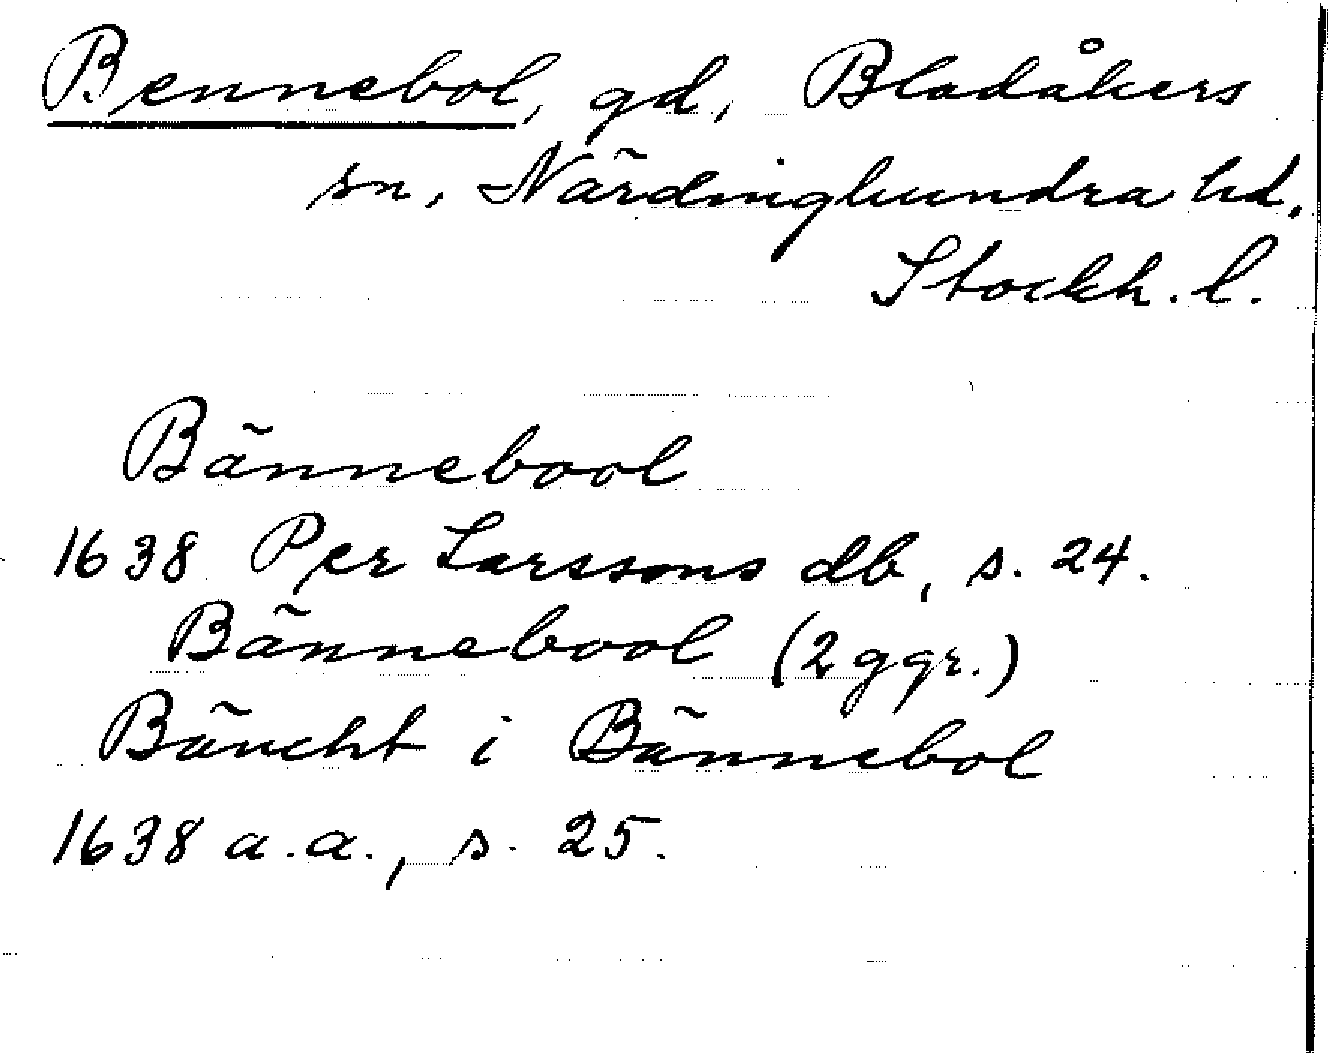 Bennebol, gd, Bladåkers
sn, Närdinghundra hd.
Stockh. l.
Bännebool
1638 Per Larssons db, s. 24.
Bännebool (2 ggr.)
Bäncht i Bännebol
1638 a.a., s. 25.